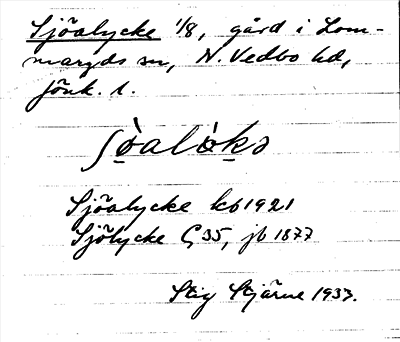 Sjöalycke 1/8, gård i Lom-
maryds sn, N. Vedbo hd,
Jönk. l.
ʃȯ̱alȯ̱kə
Sjöalycke kb 1921
Sjölycke C, 35, jb 1877
Stig Stjärne 1933.